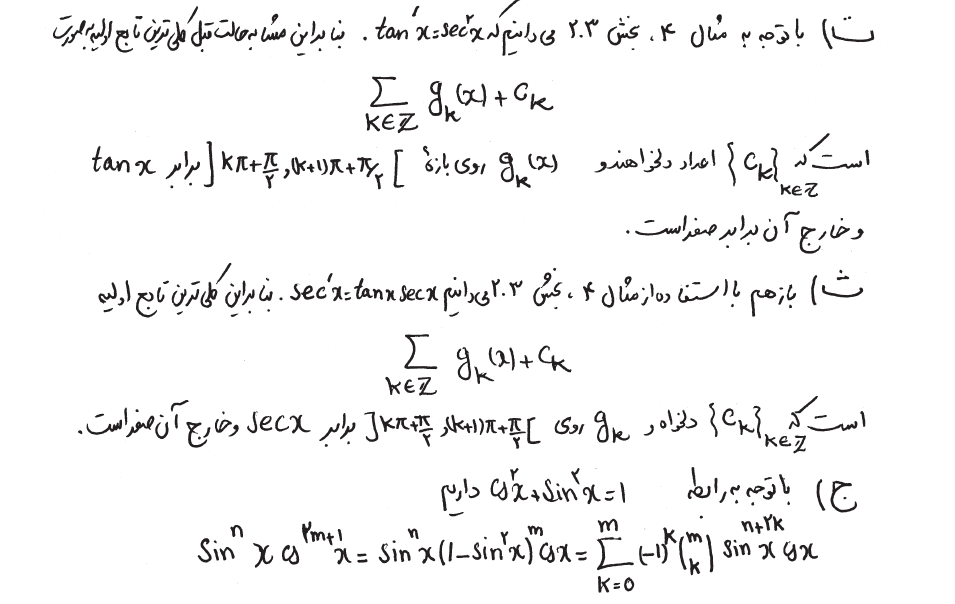 ت) با توجه به مثال ۴، بخش ۲.۳ می‌دانیم که tan′x = sec²x. بنابراین مشابه حالت قبل کلی‌ترین تابع اولیه به صورت
∑_{k∈ℤ} g_k(x) + C_k
است که {C_k}_{k∈ℤ} اعداد دلخواهند و g_k(x) روی بازهٔ ]kπ+π/۲, (k+1)π+π/۲[ برابر tan x
و خارج آن برابر صفر است.
ث) باز هم با استفاده از مثال ۴، بخش ۲.۳ می‌دانیم sec′x = tanx secx. بنابراین کلی‌ترین تابع اولیه
∑_{k∈ℤ} g_k(x) + C_k
است که {C_k}_{k∈ℤ} دلخواه و g_k روی ]kπ+π/۲, (k+1)π+π/۲[ برابر secx و خارج آن صفر است.
ج) با توجه به رابطه cos²x + sin²x = 1 داریم
sin^n x cos^{۲m+1} x = sin^n x (1 − sin²x)^m cos x = ∑_{k=0}^{m} (−1)^k (m k) sin^{n+۲k} x cos x